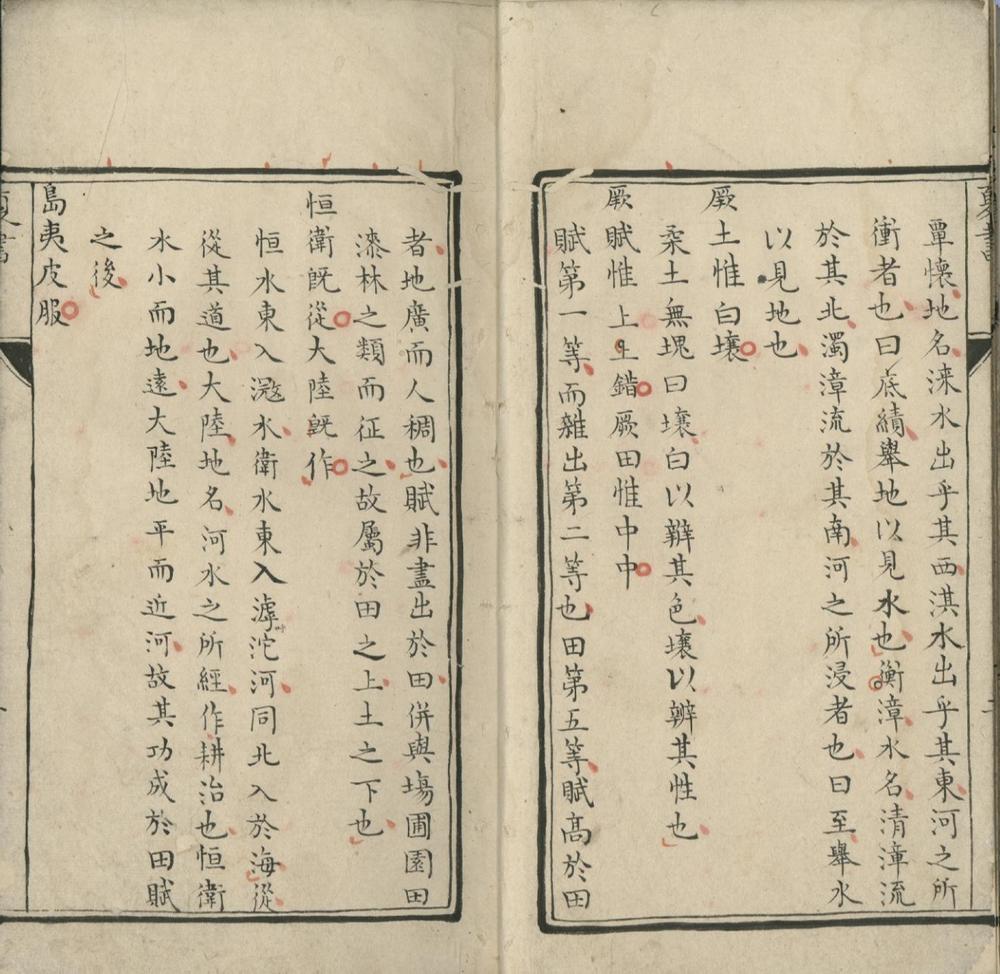 夏書
覃懷地名淶水出乎其西淇水出乎其東河之所
衝者也曰底績舉地以見水也衡漳水名清漳流
於其北濁漳流於其南河之所浸者也曰至舉水
以見地也
厥土惟白壤
柔土無塊曰壤白以辨其色壤以辨其性也
厥賦惟上上錯厥田惟中中
賦第一等而雜出第二等也田第五等賦高於田
者地廣而人稠也賦非盡出於田併與塲圃園田
漆林之類而征之故屬於田之上土之下也
恒衛旣從大陸旣作
恒水東入滱水衛水東入滹沱河同北入於海從
從其道也大陸地名河水之所經作耕治也恒衛
水小而地遠大陸地平而近河故其功成於田賦
之後
島夷皮服
夏書